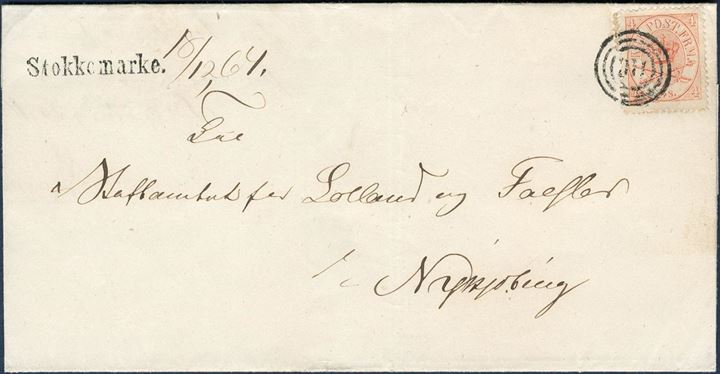 Stokkemarke. 15/12 64.
4 POST.FRM. 4
4 S.
Til
Stiftamtet for Lolland og Falster
i
Nykjøbing